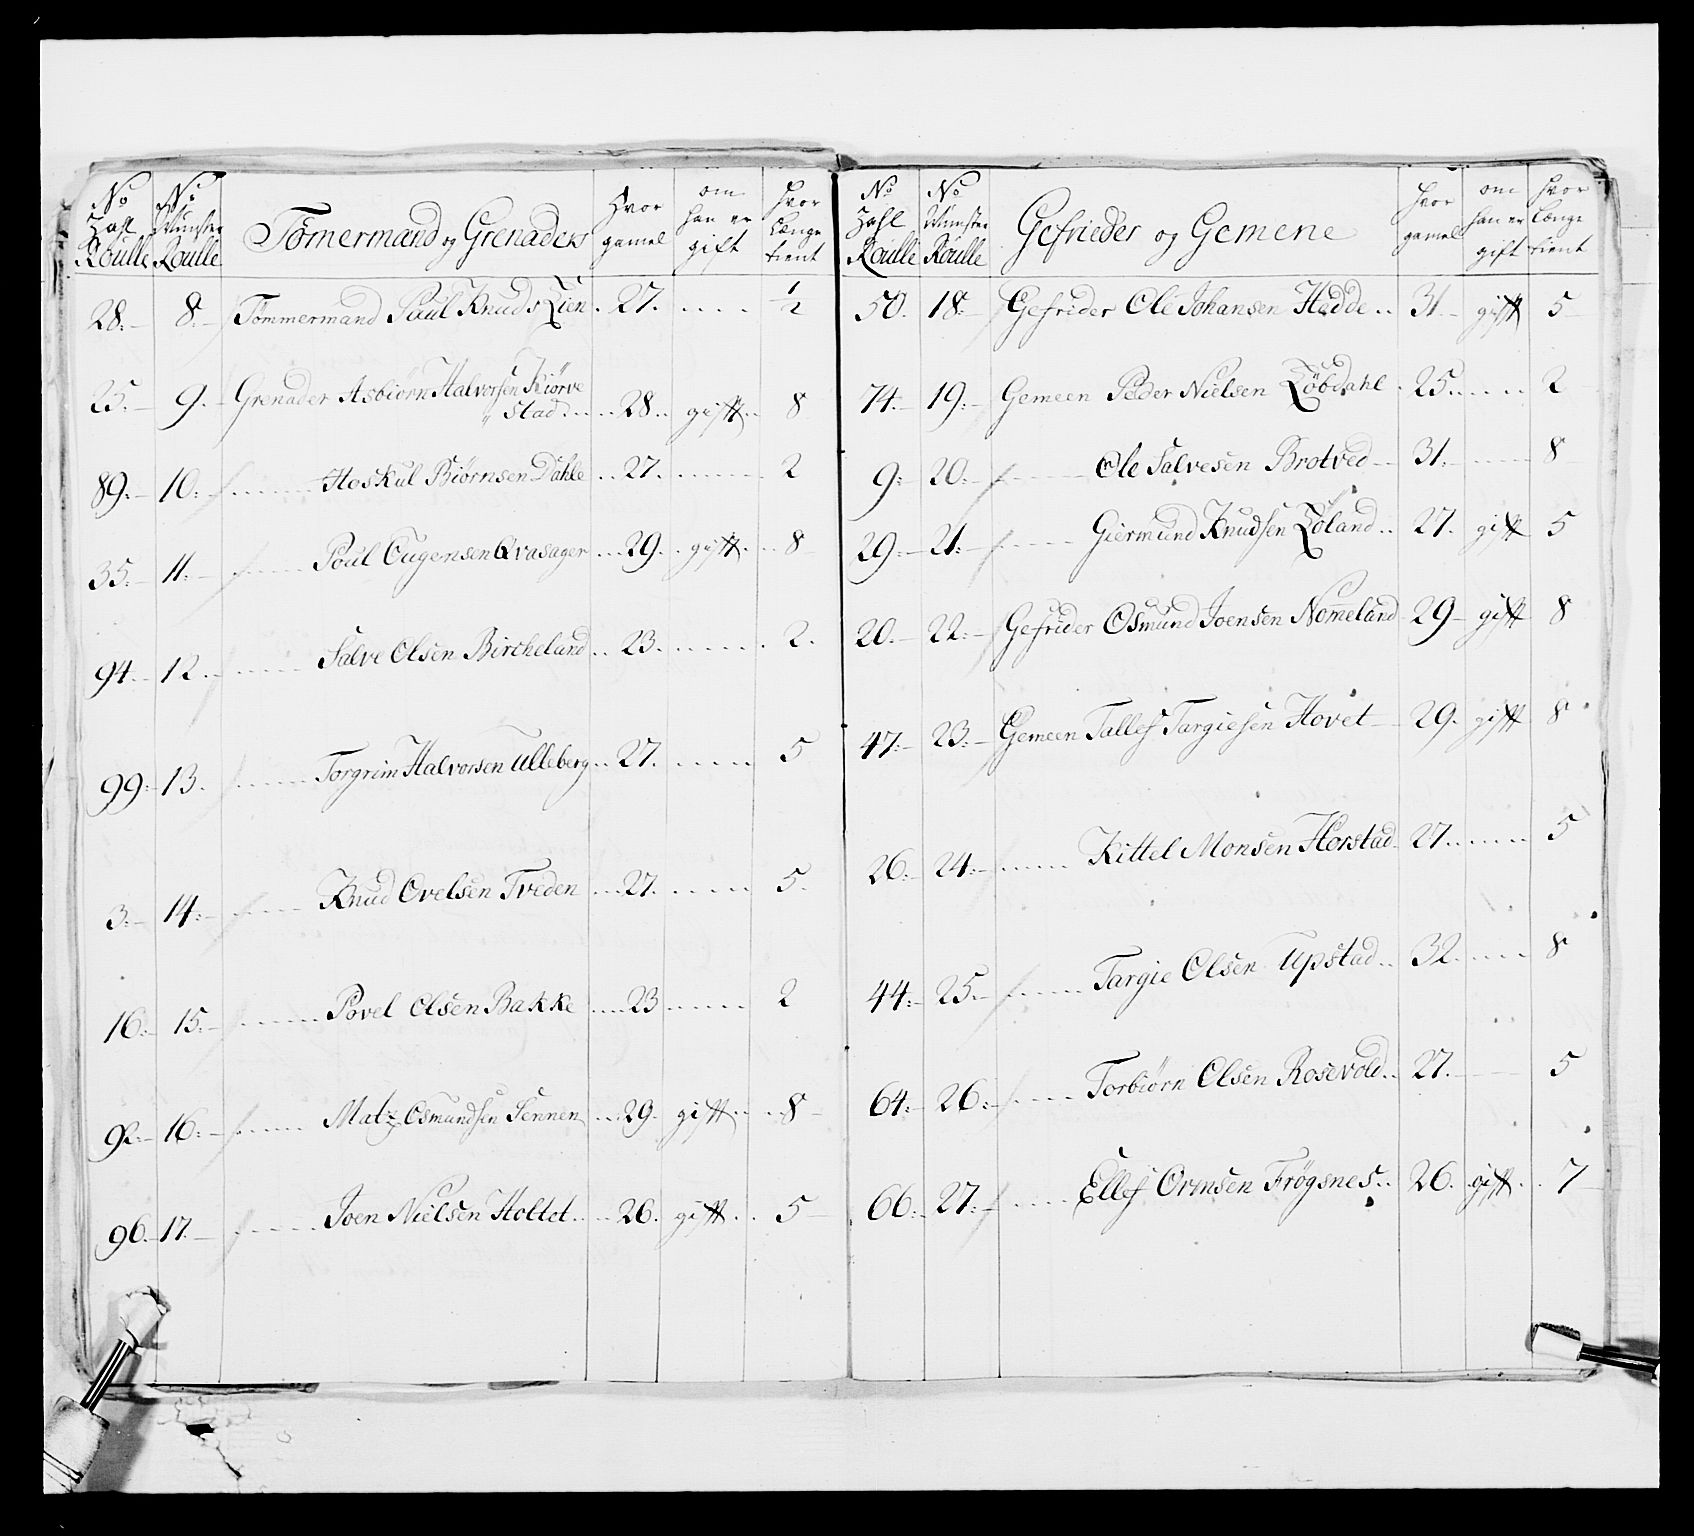 No Zahl Roulle | No Munster Roulle | Tømermand og Grenader | Hvor gamel | om han er gift | hvor Længe tient
28. 8. Tømmermand Paul Knuds Lien 27. ½
25. 9. Grenader Asbiørn Halvorsen Kiørve
stad 28. gift 8
89. 10. Hoskul Biørnsen Dahle 27. 2
35. 11. Poul Eugensen Qvasager 29. gift 8
94. 12. Salve Olsen Bircheland 23. 2.
99. 13. Torgrim Halvorsen Ulleberg 27. 5
3. 14. Knud Ovelsen Tveden 27. 5.
16. 15. Povel Olsen Bakke 23 2
92. 16. Matz Osmundsen Sennen 29. gift 8
96. 17. Joen Nielsen Holtet 26. gift 5
No Zahl Roulle | No Munster Roulle | Gefrieder og Gemene | hvor gamel | om han er gift | hvor Længe tient
50. 18. Gefrider Ole Johansen Hedde 31. gift 5
74. 19. Gemeen Peder Nielsen Løbdahl 25. 2
9. 20. Ole Salvesen Brotved 31. 8
29. 21. Giermund Knudsen Løland 27. gift 5
20. 22. Gefrider Osmund Joensen Nomeland 29 gift 8
47. 23. Gemeen Tallef Targiesen Hovet 29. gift 8
26. 24. Kittel Monsen Horstad 27. 5
44. 25. Targie Olsen Upstad 32. 8
64. 26. Torbiørn Olsen Rosevold 27. 5
66. 27. Ellef Ormsen Frøgsnes 26. gift 7